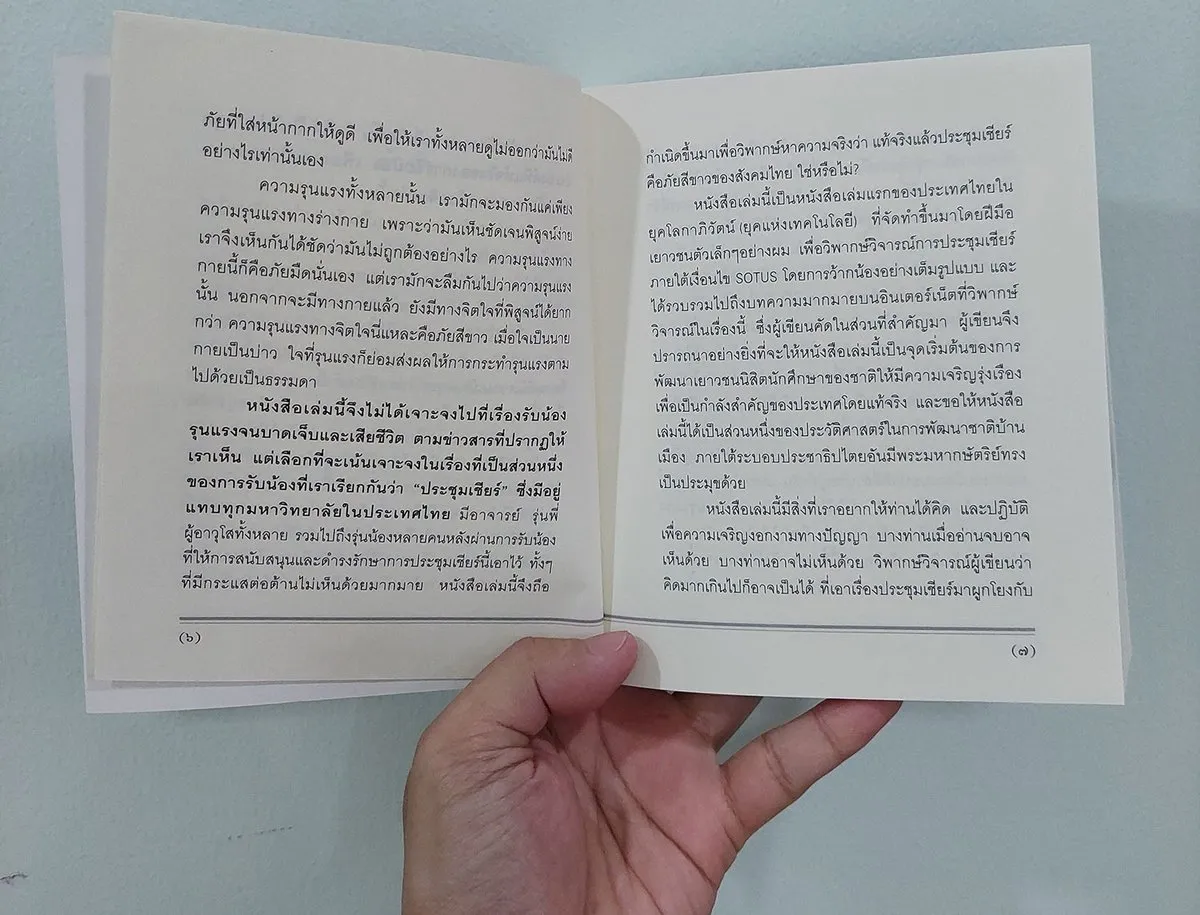 ภัยที่ใส่หน้ากากให้ดูดี เพื่อให้เราทั้งหลายดูไม่ออกว่ามันไม่ดี
อย่างไรเท่านั้นเอง
ความรุนแรงทั้งหลายนั้น เรามักจะมองกันแค่เพียง
ความรุนแรงทางร่างกาย เพราะว่ามันเห็นชัดเจนพิสูจน์ง่าย
เราจึงเห็นกันได้ชัดว่ามันไม่ถูกต้องอย่างไร ความรุนแรงทาง
กายนี้ก็คือภัยมืดนั่นเอง แต่เรามักจะลืมกันไปว่าความรุนแรง
นั้น นอกจากจะมีทางกายแล้ว ยังมีทางจิตใจที่พิสูจน์ได้ยาก
กว่า ความรุนแรงทางจิตใจนี่แหละคือภัยสีขาว เมื่อใจเป็นนาย
กายเป็นบ่าว ใจที่รุนแรงก็ย่อมส่งผลให้การกระทำรุนแรงตาม
ไปด้วยเป็นธรรมดา
หนังสือเล่มนี้จึงไม่ได้เจาะจงไปที่เรื่องรับน้อง
รุนแรงจนบาดเจ็บและเสียชีวิต ตามข่าวสารที่ปรากฏให้
เราเห็น แต่เลือกที่จะเน้นเจาะจงในเรื่องที่เป็นส่วนหนึ่ง
ของการรับน้องที่เราเรียกกันว่า “ประชุมเชียร์” ซึ่งมีอยู่
แทบทุกมหาวิทยาลัยในประเทศไทย มีอาจารย์ รุ่นพี่
ผู้อาวุโสทั้งหลาย รวมไปถึงรุ่นน้องหลายคนหลังผ่านการรับน้อง
ที่ให้การสนับสนุนและดำรงรักษาการประชุมเชียร์นี้เอาไว้ ทั้งๆ
ที่มีกระแสต่อต้านไม่เห็นด้วยมากมาย หนังสือเล่มนี้จึงถือ
(๖)
กำเนิดขึ้นมาเพื่อวิพากษ์หาความจริงว่า แท้จริงแล้วประชุมเชียร์
คือภัยสีขาวของสังคมไทย ใช่หรือไม่?
หนังสือเล่มนี้เป็นหนังสือเล่มแรกของประเทศไทยใน
ยุคโลกาภิวัตน์ (ยุคแห่งเทคโนโลยี) ที่จัดทำขึ้นมาโดยฝีมือ
เยาวชนตัวเล็กๆอย่างผม เพื่อวิพากษ์วิจารณ์การประชุมเชียร์
ภายใต้เงื่อนไข SOTUS โดยการว้ากน้องอย่างเต็มรูปแบบ และ
ได้รวบรวมไปถึงบทความมากมายบนอินเตอร์เน็ตที่วิพากษ์
วิจารณ์ในเรื่องนี้ ซึ่งผู้เขียนคัดในส่วนที่สำคัญมา ผู้เขียนจึง
ปรารถนาอย่างยิ่งที่จะให้หนังสือเล่มนี้เป็นจุดเริ่มต้นของการ
พัฒนาเยาวชนนิสิตนักศึกษาของชาติให้มีความเจริญรุ่งเรือง
เพื่อเป็นกำลังสำคัญของประเทศโดยแท้จริง และขอให้หนังสือ
เล่มนี้ได้เป็นส่วนหนึ่งของประวัติศาสตร์ในการพัฒนาชาติบ้าน
เมือง ภายใต้ระบอบประชาธิปไตยอันมีพระมหากษัตริย์ทรง
เป็นประมุขด้วย
หนังสือเล่มนี้มีสิ่งที่เราอยากให้ท่านได้คิด และปฏิบัติ
เพื่อความเจริญงอกงามทางปัญญา บางท่านเมื่ออ่านจบอาจ
เห็นด้วย บางท่านอาจไม่เห็นด้วย วิพากษ์วิจารณ์ผู้เขียนว่า
คิดมากเกินไปก็อาจเป็นได้ ที่เอาเรื่องประชุมเชียร์มาผูกโยงกับ
(๗)